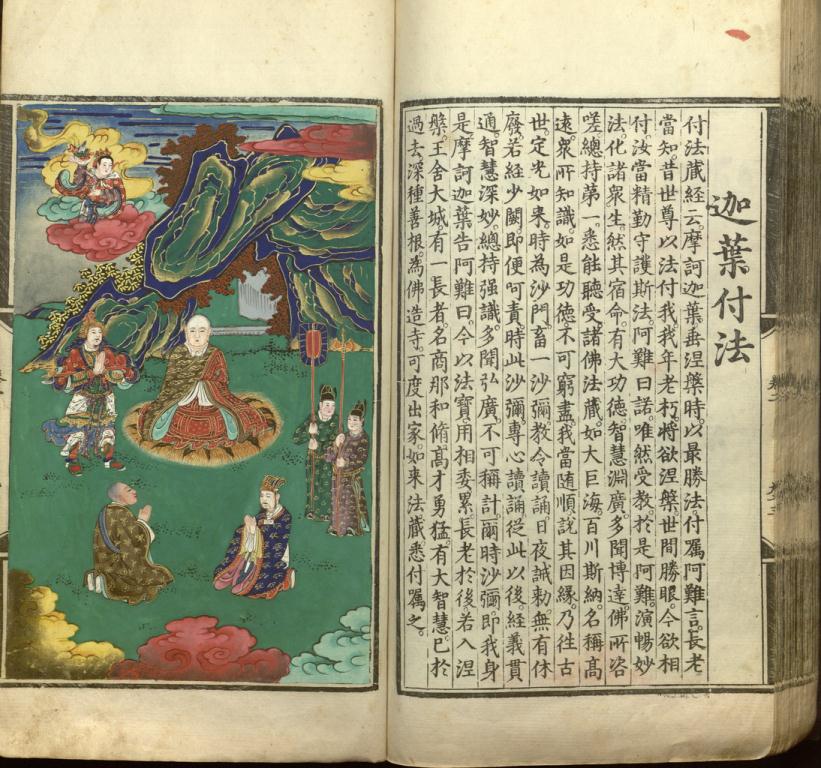 迦葉付法
付法藏經云。摩訶迦葉垂涅槃時。以最勝法。付囑阿難言。長老
當知。昔世尊以法付我。我年老朽。將欲涅槃。世間勝眼。今欲相
付。汝當精勤守護斯法。阿難曰諾。唯然受教。於是阿難。演暢妙
法。化諸衆生。然其宿命。有大功德。智慧淵廣。多聞博達。佛所咨
嗟。總持第一。悉能聽受諸佛法藏。如大巨海。百川斯納。名稱髙
遠。衆所知識。如是功德。不可窮盡。我當随順。說其因緣。乃徃古
世。定光如来。時為沙門。畜一沙彌。教令讀誦。日夜誡勅。無有休
廢。若經少闕。即便呵責。時此沙彌。專心讀誦。從此以後。經義貫
通。智慧深妙。總持强識。多聞弘廣。不可稱計。爾時沙彌。即我身
是。摩訶迦葉告阿難曰。今以法寶。用相委累。長老於後。若入涅
槃。王舍大城。有一長者。名商那和脩。髙才勇猛。有大智慧。已於
過去。深種善根。為佛造寺。可度出家。如来法藏。悉付囑之。